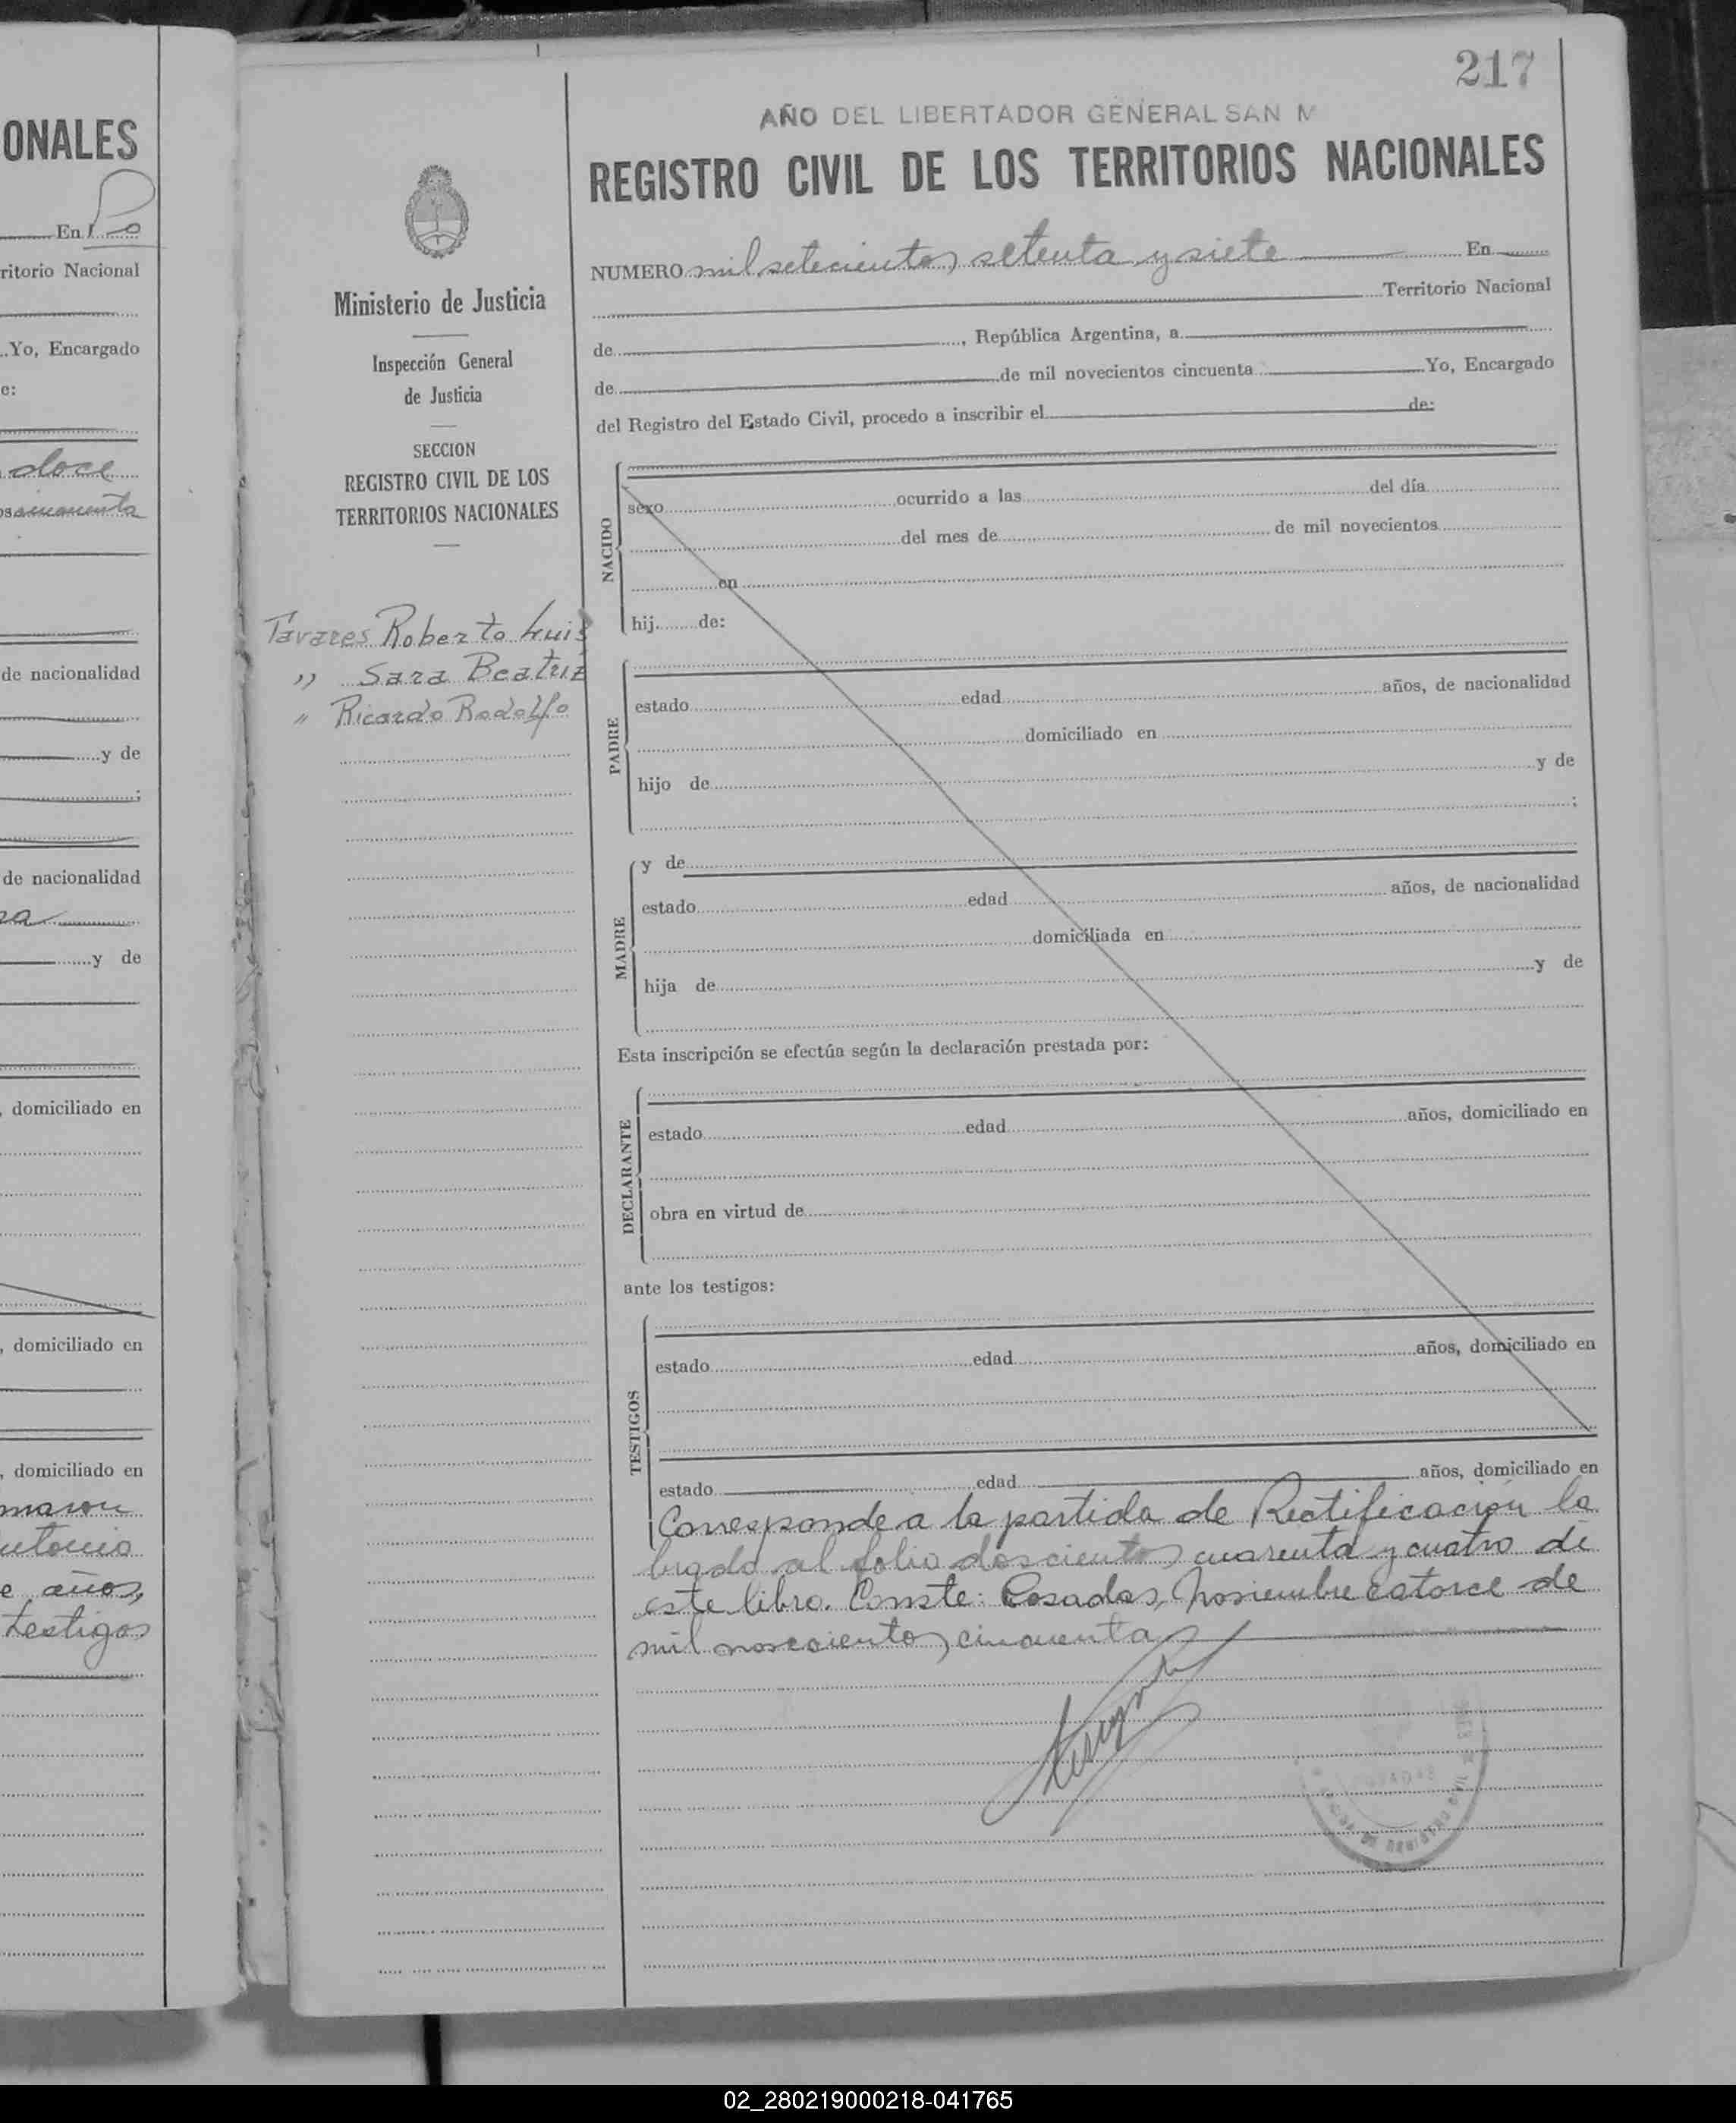 ONALES
En Po
ritorio Nacional
Yo, Encargado
e:
doce
os cincuenta
de nacionalidad
y de
;
de nacionalidad
ra
y de
, domiciliado en
, domiciliado en
, domiciliado en
maron
utonio
e años,
testigos
217
AÑO DEL LIBERTADOR GENERAL SAN M
REGISTRO CIVIL DE LOS TERRITORIOS NACIONALES
Ministerio de Justicia
Inspección General
de Justicia
SECCION
REGISTRO CIVIL DE LOS
TERRITORIOS NACIONALES
Tavares Roberto Luis
" Sara Beatriz
" Ricardo Rodolfo
NUMERO mil setecientos setenta y siete En
Territorio Nacional
de , República Argentina, a
de de mil novecientos cincuenta Yo, Encargado
del Registro del Estado Civil, procedo a inscribir el de:
NACIDO
sexo ocurrido a las del día
del mes de de mil novecientos
en
hij de:
PADRE
estado edad años, de nacionalidad
domiciliado en
hijo de y de
;
MADRE
y de
estado edad años, de nacionalidad
domiciliada en
hija de y de
Esta inscripción se efectúa según la declaración prestada por:
DECLARANTE
estado edad años, domiciliado en
obra en virtud de
ante los testigos:
TESTIGOS
estado edad años, domiciliado en
estado edad años, domiciliado en
Corresponde a la partida de Rectificación la
brada al folio doscientos cuarenta y cuatro de
este libro. Conste: Posadas, Noviembre catorce de
mil novecientos cincuenta
02_280219000218-041765